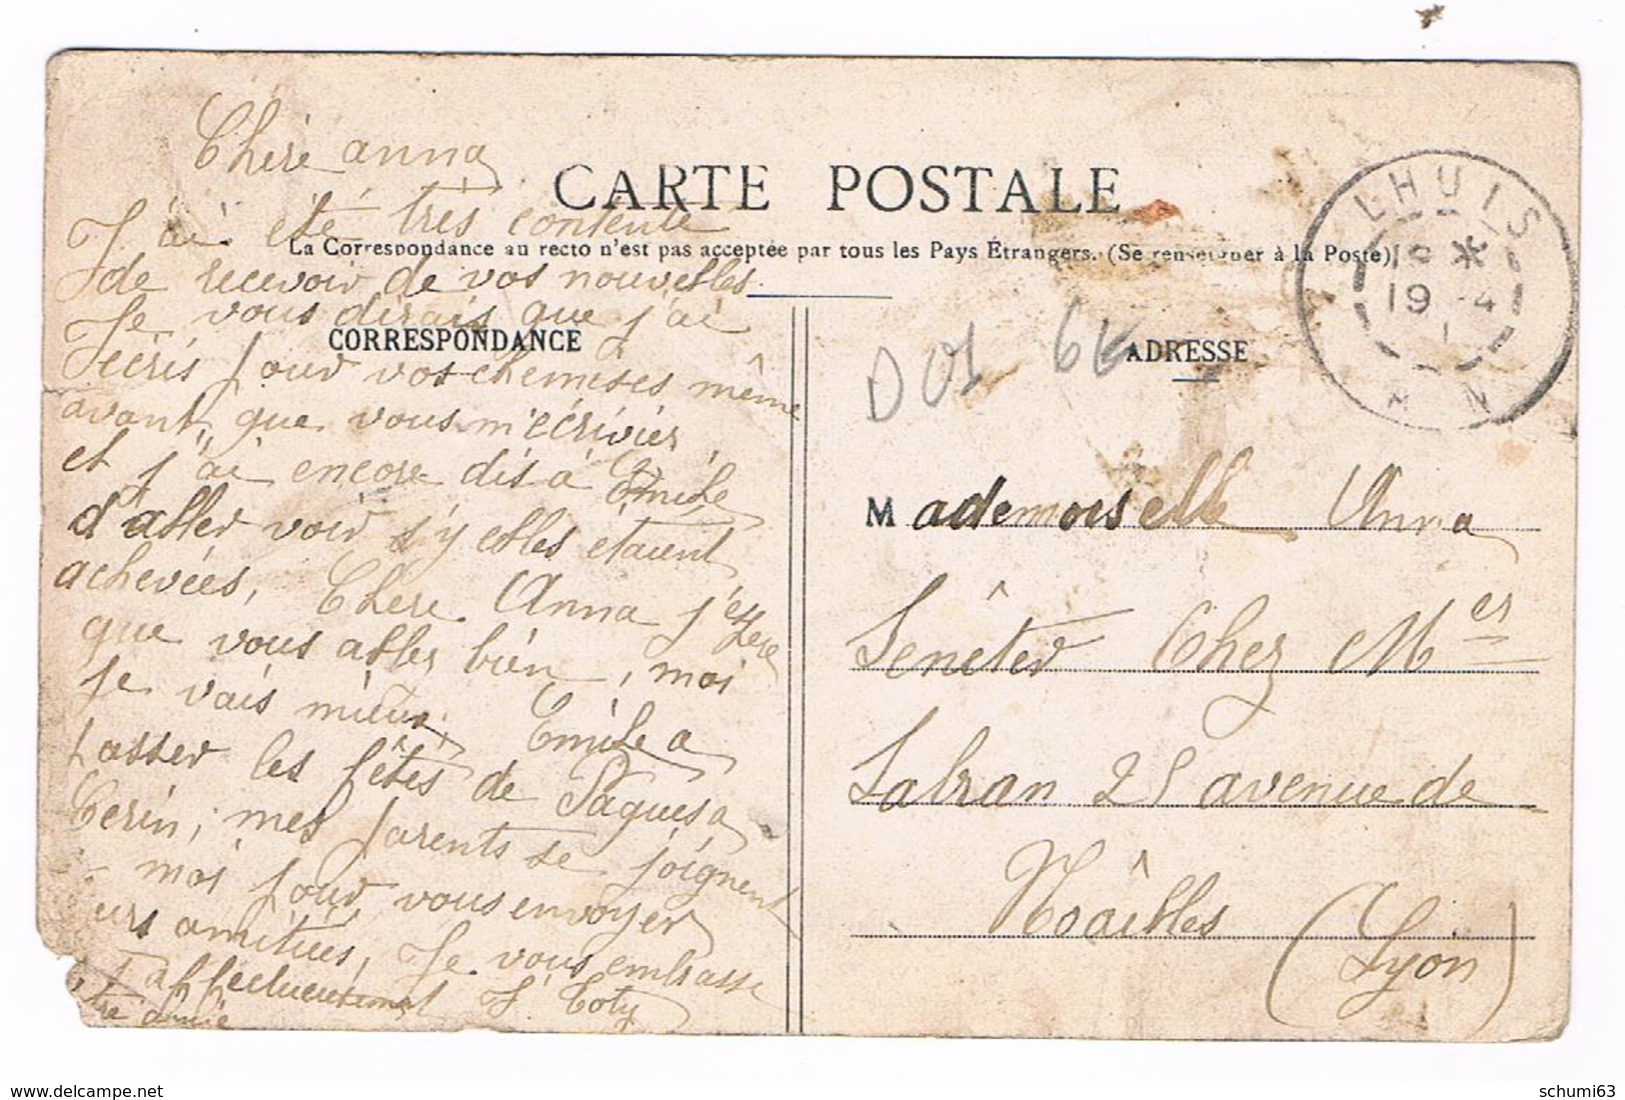 CARTE POSTALE
La Correspondance au recto n'est pas acceptée par tous les Pays Étrangers. (Se renseigner à la Poste)
CORRESPONDANCE
Chère anna
J'ai été très contente
de recevoir de vos nouvelles
Je vous dirais que j'ai
écris pour vos chemises même
avant, que vous m'écriviés
et j'ai encore dis à Emile
d'aller voir s'y elles étaient
achevées, Chère Anna j'espère
que vous alles bien, moi
je vais mieux, Emile a
passer les fêtes de Pâques a
Cerin; mes parents se joignent
a moi pour vous envoyer
urs amitiées, Je vous embrasse
affectueusement J. Coty
tre amie
ADRESSE
LHUIS
19 -4
AIN
Mademoiselle Anna
Senêter Chez Mer
Labran 25 avenue de
Noâilles (Lyon)
www.delcampe.net
schumi63